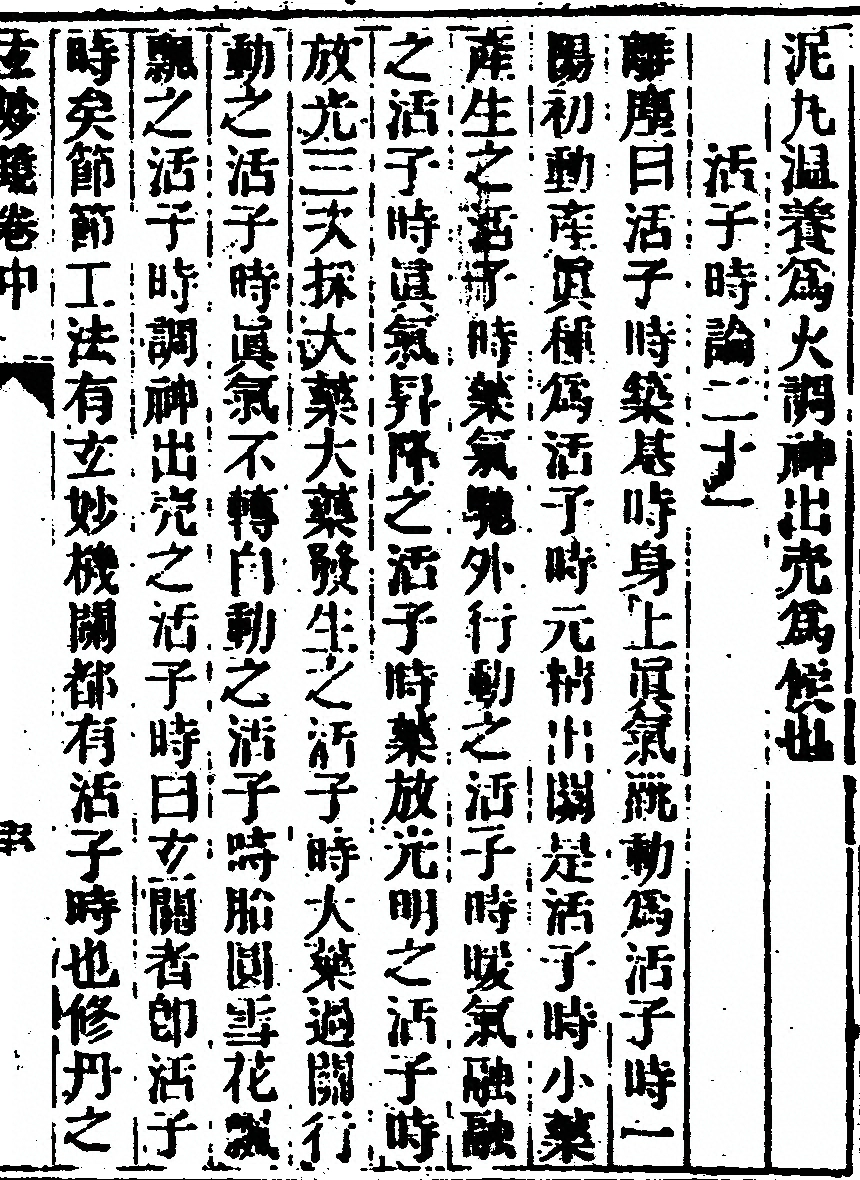 泥丸温養爲火調神出壳爲候也
活子時論二十一
離塵曰活子時築基時身上眞氣跳動爲活子時一
陽初動産眞種爲活子時元精出關是活子時小藥
産生之活子時藥氣馳外行動之活子時暖氣融融
之活子時眞氣昇降之活子時藥放光明之活子時
放光三次採大藥大藥發生之活子時大藥過關行
動之活子時眞氣不轉自動之活子時胎圓雪花飄
飄之活子時調神出壳之活子時曰玄關者卽活子
時矣節節工法有玄妙機關都有活子時也修丹之
玄妙鏡卷中